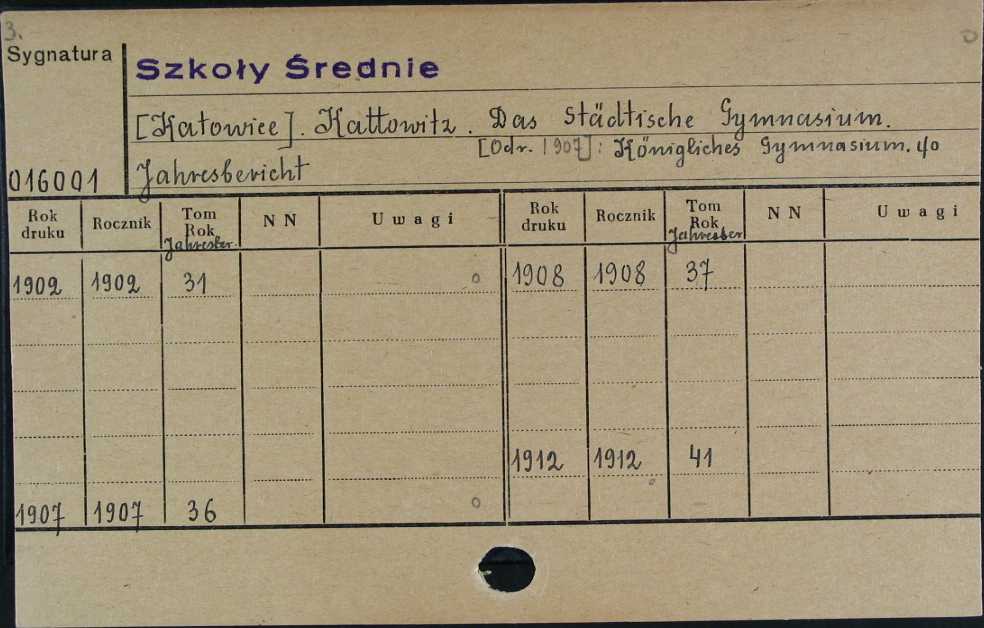 3.
Sygnatura
Szkoły Średnie
[Katowice]. Kattowitz. Das Städtische Gymnasium.
[Odr. 1907]: Königliches Gymnasium. 4o
016001 Jahresbericht
Rok druku Rocznik Tom Rok Jahresber. NN Uwagi Rok druku Rocznik Tom Rok Jahresber NN Uwagi
1902 1902 31 o 1908 1908 37
1912 1912 41
1907 1907 36 o